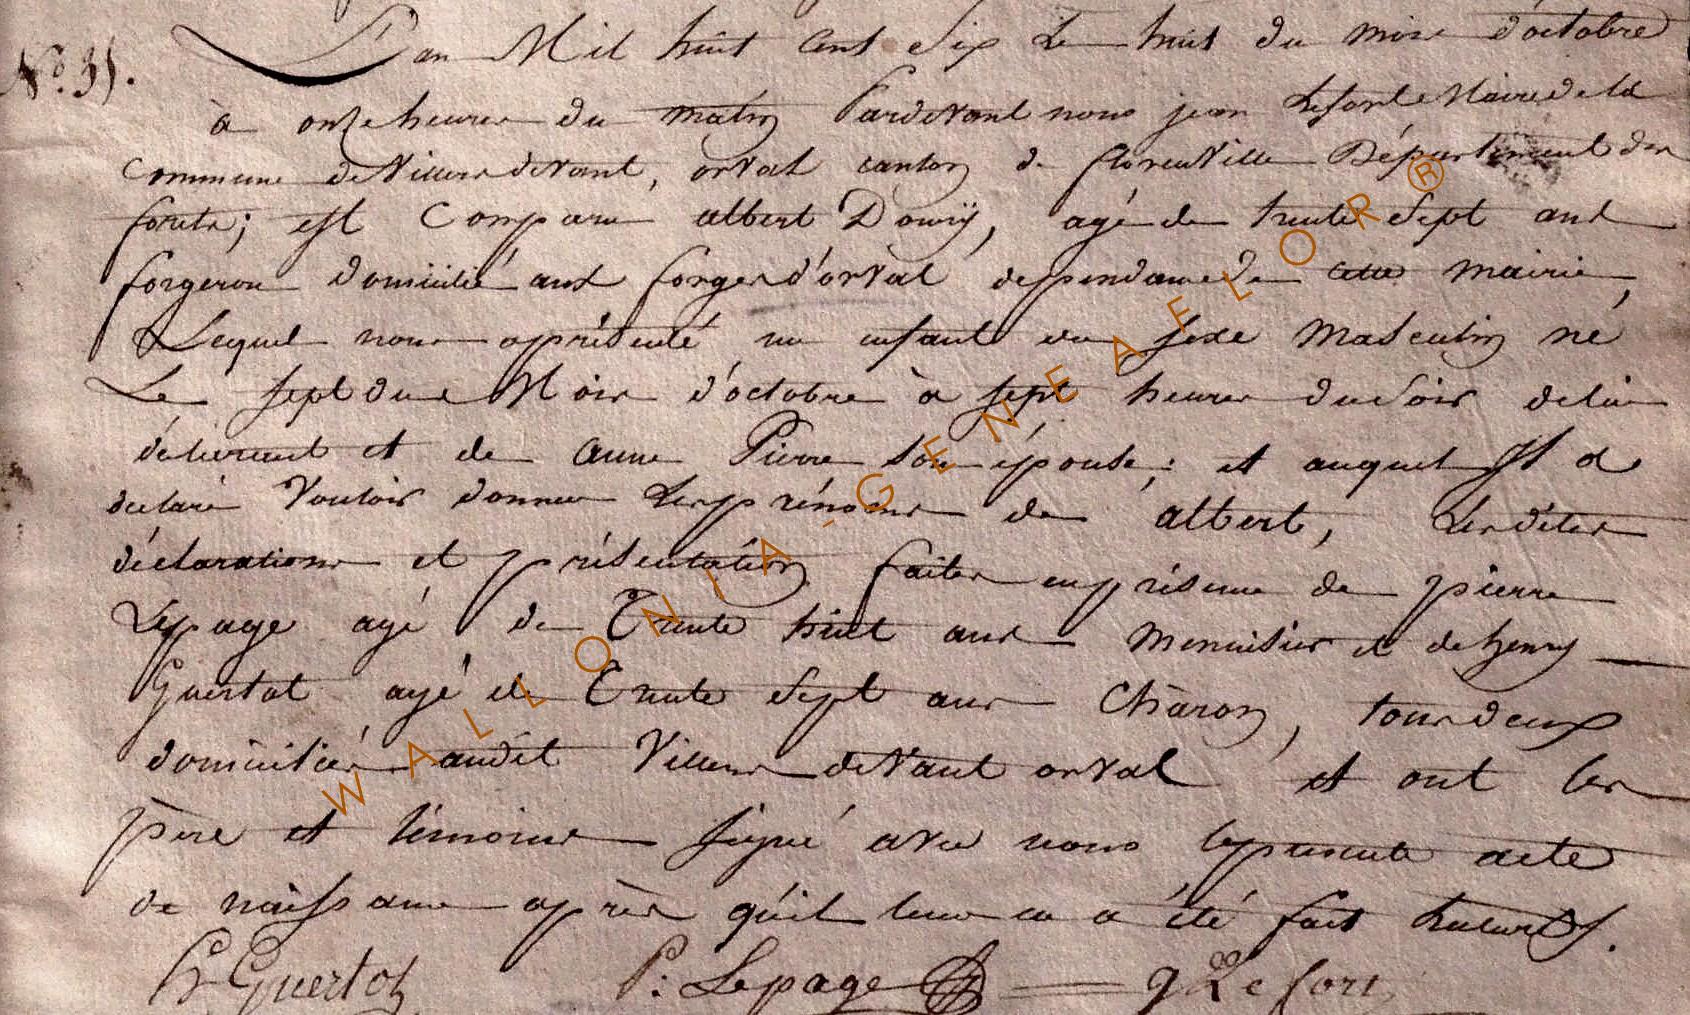 No. 35.
L'an Mil huit cent Six Le huit du mois d'octobre
à onze heures du matin Pardevant nous jean Lefort Maire de la
Commune de Villers devant, orval canton de florenville Département des
forets; est Comparu albert Douny, agé de trente Sept ans
forgeron domicilié aux forges d'orval dependance de cette mairie,
Lequel nous a présenté un enfant du sexe Masculin né
Le sept du Mois d'octobre à sept heures du soir de lui
déclarant et de anne Pierre son épouse; et auquel Il a
déclaré Vouloir donner Les prénoms de albert, Les dites
déclarations et présentation faites en présence de pierre
Lepage agé de Trente huit ans Menuisier et de henry
Guertot agé de Trente Sept ans Charon, tous deux
domiciliés audit Villers devant orval et ont les
père et témoins signé avec nous le présente acte
de naissance après qu'il leur en a été fait Lecture.
h Guertot P: Lepage j Lefort
WALLONIA-GENEAFLOR®